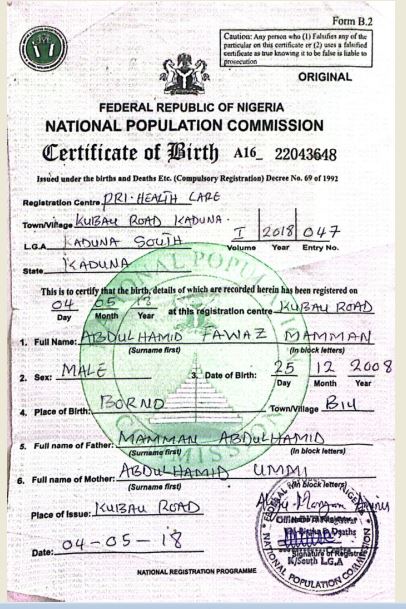 Form B.2
Caution: Any person who (1) Falsifies any of the
particular on this certificate or (2) uses a falsified
certificate as true knowing it to be false is liable to
prosecution
ORIGINAL
FEDERAL REPUBLIC OF NIGERIA
NATIONAL POPULATION COMMISSION
Certificate of Birth A16_ 22043648
Issued under the births and Deaths Etc. (Compulsory Registration) Decree No. 69 of 1992
Registration Centre PRI-HEALTH CARE
Town/Village KUBAU ROAD KADUNA.
I 2018 047
L.G.A KADUNA SOUTH Volume Year Entry No.
State KADUNA
This is to certify that the birth, details of which are recorded herein has been registered on
04 05 at this registration centre KUBAU ROAD
Day Month Year
1. Full Name: ABDULHAMID FAWAZ MAMMAN
(Surname first) (In block letters)
2. Sex: MALE 3. Date of Birth: 25 12 2008
Day Month Year
4. Place of Birth: BORNO Town/Village BIU
5. Full name of Father: MAMMAN ABDULHAMID
(Surname first) (In block letters)
6. Full name of Mother: ABDULHAMID UMMI
(Surname first) (In block letters)
Place of Issue: KUBAU ROAD
Date: 04-05-18
Signature of Registrar
K/South L.G.A
NATIONAL POPULATION COMMISSION
NATIONAL REGISTRATION PROGRAMME